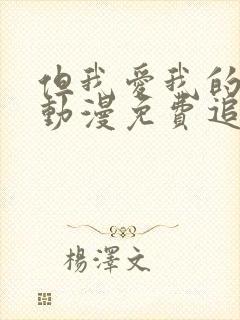 但我愛我的
動漫免費追
楊澤文